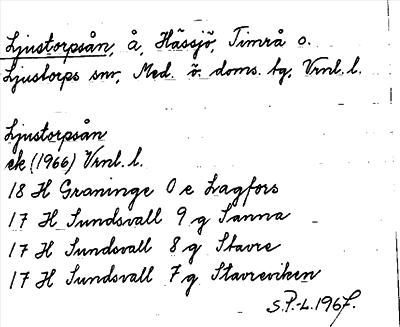 Ljustorpsån, å, Hässjö, Timrå o.
Ljustorps snr, Med. ö. doms. tg, Vrnl. l.
Ljustorpsån
ek (1966) Vrnl. l.
18 H Graninge 0 e Lagfors
17 H Sundsvall 9 g Sanna
17 H Sundsvall 8 g Stavre
17 H Sundsvall 7 g Stavreviken
S.P.-L. 1967.